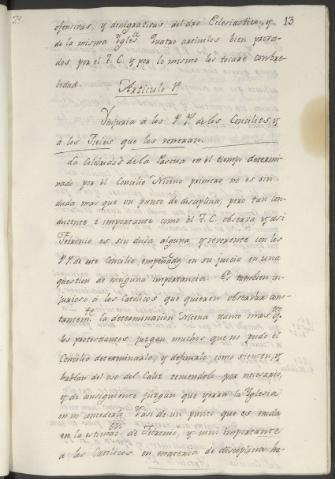 13
ofensivas, y denigrativas del dro Eclesiastico, y
de la misma Yglesª. Quatro articulos bien pesa-
dos por el T. C. y por lo mismo los tocaré con bre-
bedad.
Articulo 1º
Ynjuria á los P.P. de los Concilios, y
á los Fieles que los veneran.
La Celebridad de la Pascua en el tiempo determi-
nado por el Concilio Niceno primero no es sin
duda mas que un punto de disciplina, pero tan con-
ducente é importante como el T. C. observa y asi
Febronio es sin duda alguna, y reverente con los
P.P. de este Concilio empeñados en su juicio en una
question de ninguna importancia. Es tambien in-
jurioso á los Catolicos que quieren observar
la determinacion Nicena
los protestantes juzgan muchos que no pudo el
Concilio determinarlo, y definirlo como sienten, y
hablan del uso del Caliz teniendolo por necesario,
y de consiguiente juzgan que yerra la Yglesia
en no concederlo. Pasi de un punto que es nada
en la estimaⁿ de Febronio, y mui importante
á los Catolicos en materia de disciplina ha-